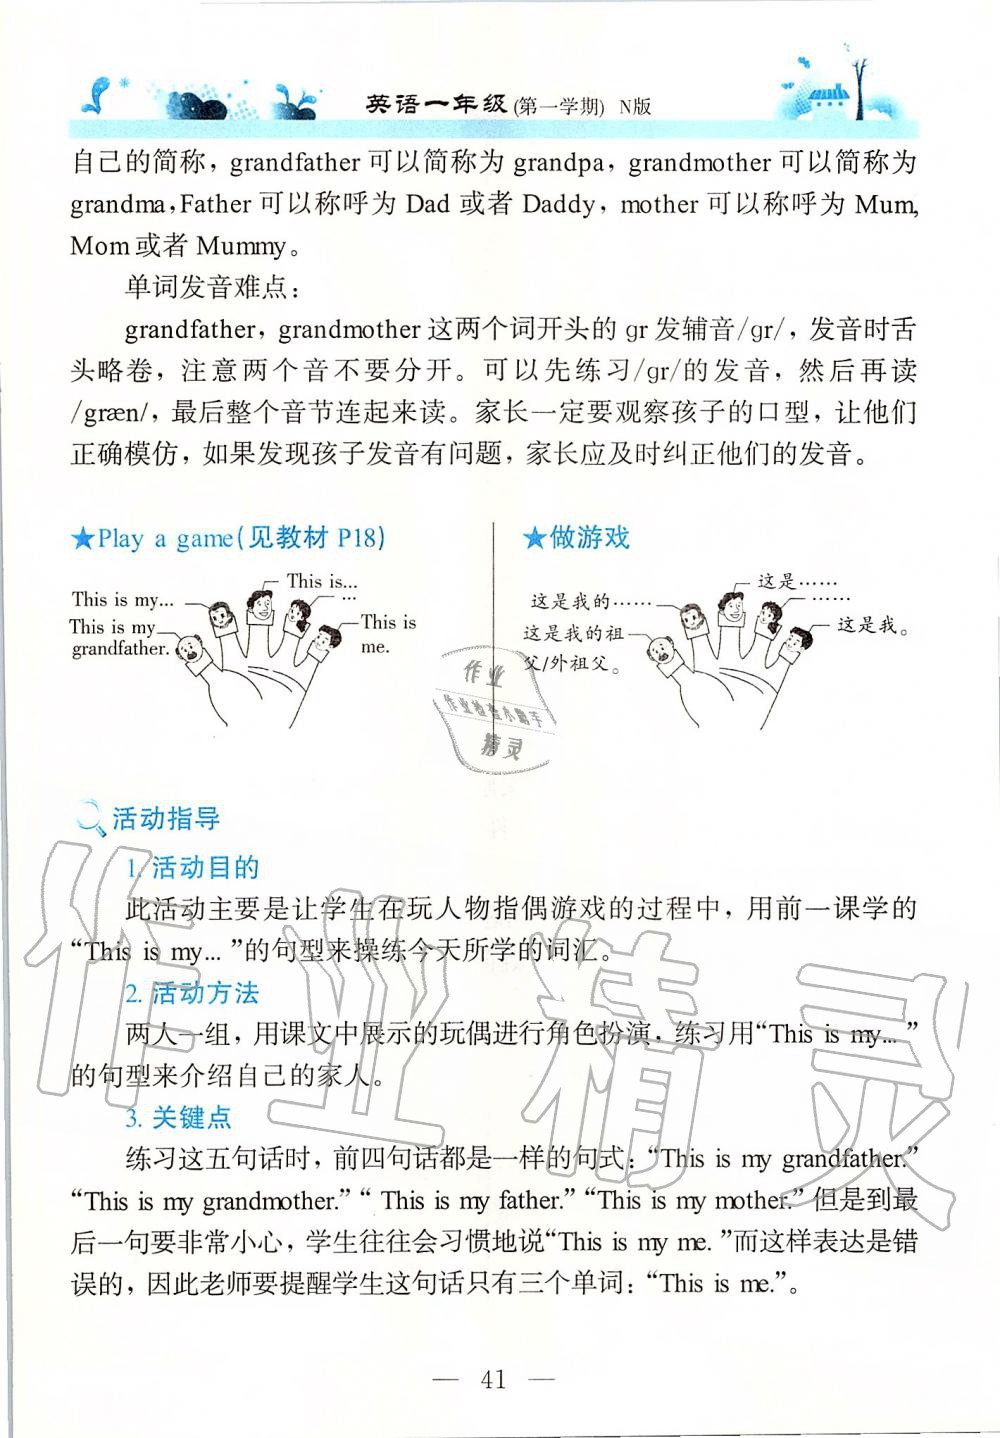 英语一年级(第一学期) N版
自己的简称，grandfather 可以简称为 grandpa，grandmother 可以简称为
grandma，Father 可以称呼为 Dad 或者 Daddy，mother 可以称呼为 Mum,
Mom 或者 Mummy。
单词发音难点：
grandfather，grandmother 这两个词开头的 gr 发辅音/gr/，发音时舌
头略卷，注意两个音不要分开。可以先练习/gr/的发音，然后再读
/græn/，最后整个音节连起来读。家长一定要观察孩子的口型，让他们
正确模仿，如果发现孩子发音有问题，家长应及时纠正他们的发音。
★Play a game(见教材 P18)
This is...
...
This is my...
This is my
grandfather.
This is
me.
★做游戏
这是……
……
这是我的……
这是我的祖
父/外祖父。
这是我。
作业
作业检查小助手
精灵
活动指导
1. 活动目的
此活动主要是让学生在玩人物指偶游戏的过程中，用前一课学的
“This is my... ”的句型来操练今天所学的词汇。
2. 活动方法
两人一组，用课文中展示的玩偶进行角色扮演，练习用“This is my... ”
的句型来介绍自己的家人。
3. 关键点
练习这五句话时，前四句话都是一样的句式：“This is my grandfather.”
“This is my grandmother.” “ This is my father.” “This is my mother.” 但是到最
后一句要非常小心，学生往往会习惯地说“This is my me. ”而这样表达是错
误的，因此老师要提醒学生这句话只有三个单词：“This is me.”。
作业精灵
— 41 —